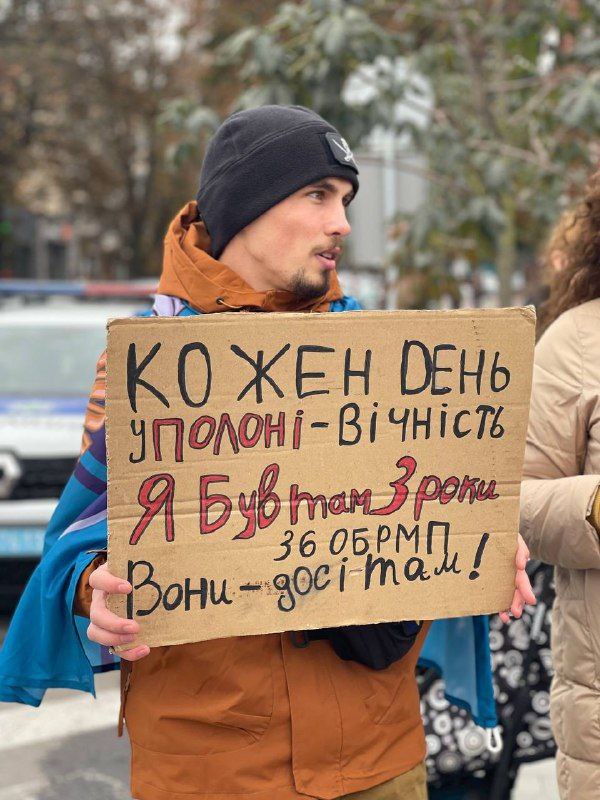 КОЖЕН DЕНЬ
у ПОЛОНІ - ВІЧНІСТЬ
Я Був там 3 роки
36 ОБРМП
Вони - досі там!